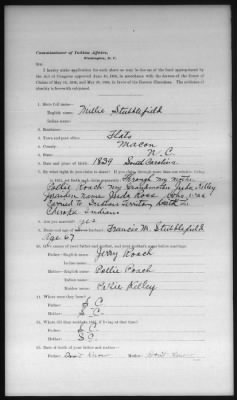 Commissioner of Indian Affairs,
Washington, D. C.
Sir:
I hereby make application for such share as may be due me of the fund appropriated by
the Act of Congress approved June 30, 1906, in accordance with the decrees of the Court of
Claims of May 18, 1905, and May 28, 1906, in favor of the Eastern Cherokees. The evidence of
identity is herewith subjoined.
1. State full name—
English name: Millie Stibblefield
Indian name:
2. Residence:
3. Town and post office: Flats
4. County: Macon
5. State: N. C.
6. Date and place of birth: 1839 South Carolina
7. By what right do you claim to share? If you claim through more than one relative living
in 1851, set forth each claim separately: Through my mother
Pollie Roach my Grandmother Kelley
name Ross who was
carried to Indian Territory
Cherokee Indians
8. Are you married? yes
9. Name and age of wife or husband: Francis M. Stibblefield
Age 67
10. Give names of your father and mother, and your mother's name before marriage.
Father—English name: Jerry Roach
Indian name:
Mother—English name: Pollie Roach
Indian name:
Maiden name: Kelley
11. Where were they born?
Father: S. C.
Mother: S. C.
12. Where did they reside in 1851, if living at that time?
Father: S. C.
Mother: S. C.
13. Date of death of your father and mother—
Father: Don't Know Mother: Don't Know